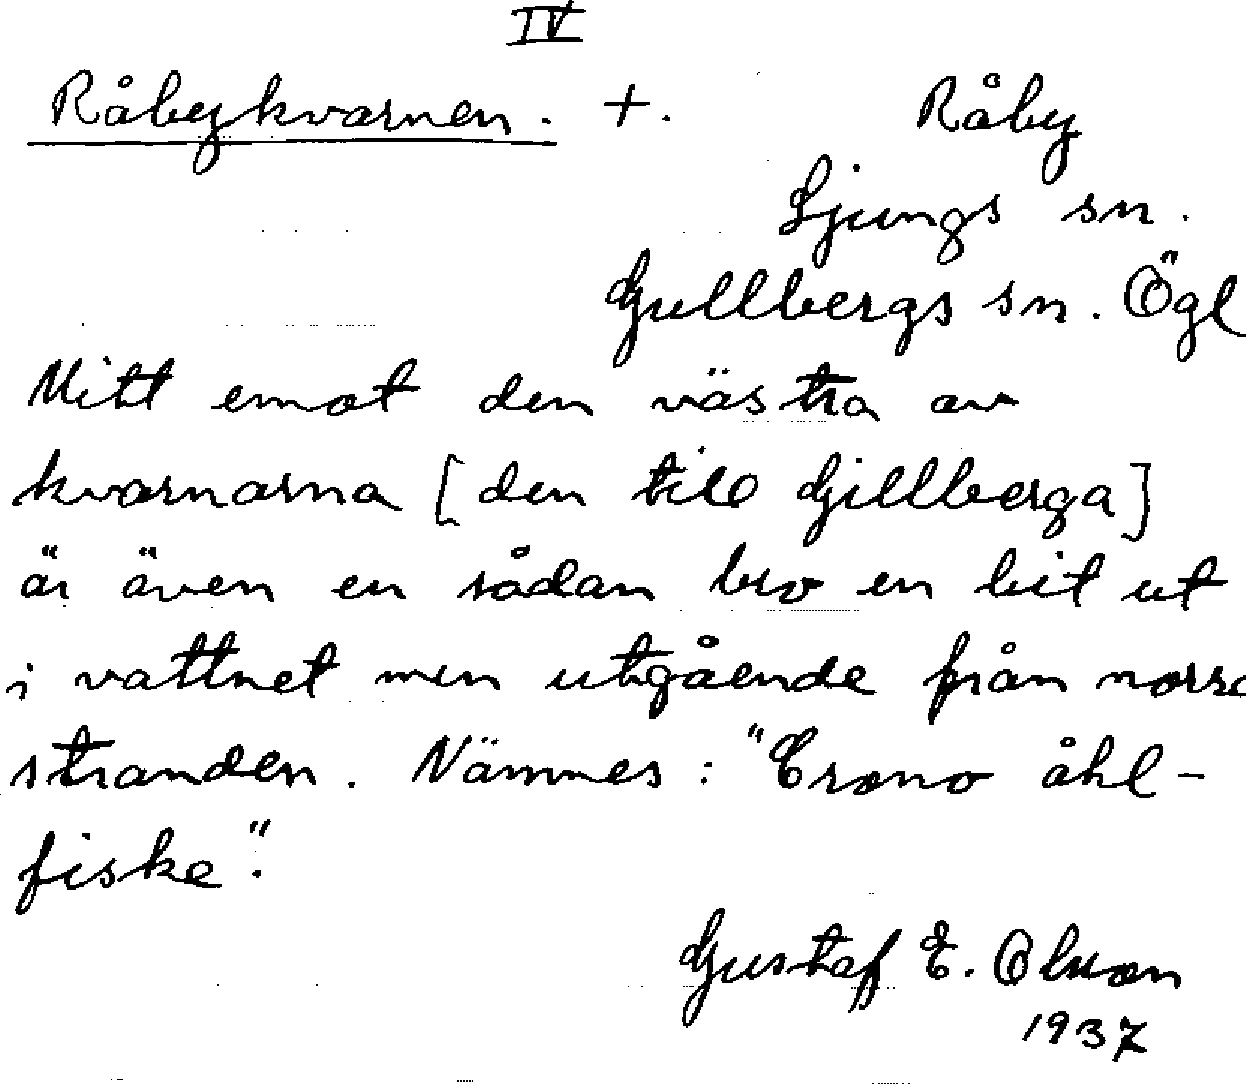 IV
Råbykvarnen. +. Råby
Ljungs sn.
Gullbergs sn. Ögl
Mitt emot den västra av
kvarnarna [den till Gillberga]
är även en sådan bro en bit ut
i vattnet men utgående från norra
stranden. Nämnes: "Crono åhl-
fiske".
Gustaf E. Olsson
1937